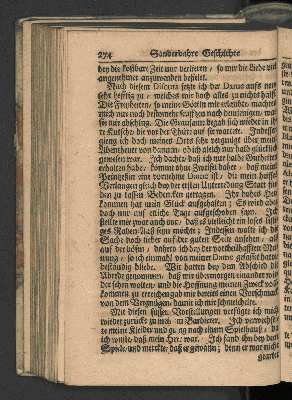 274 Sonderbahre Geschichte
bey die kostbare Zeit nur verlieren, so mir die Liebe viel
angenehmer anzuwenden befielet.
Nach diesem Discurs setzte ich der Dame auffs neue
sehr hefftig zu, welches mir doch alles zu nichts halff.
Die Freyheiten, so meine Göttin mir erlaubte, machten
mich nur noch destomehr seuffzen nach demjenigen, was
sie mir abschlug. Die Grausame begab sich wieder in ihre
Kutsche, die vor der Thüre auf sie wartete. Indessen
gieng ich doch meines Orts sehr vergnügt über mein
Abentheuer von dannen, ob ich gleich nur halb glücklich
gewesen war. Ich dachte, daß ich
erhalten habe, komme ohne Zweiffel daher, daß meine
Prinzeßin eine vornehme Dame ist, die mein
Verlangen gleich bey der ersten Unterredung Statt zu
finden zu lassen Bedencken getragen. Ihr hohes
kommen hat mein Glück aufgehalten; Es wird aber
doch nur auf etliche Tage aufgeschoben seyn. Ich
stellte mir zwar auch vor, daß es vielleicht ein loses
seyn möchte; Indessen wolte ich die
Sache doch lieber auf der guten Seite ansehen, als
auf der bösen, dahero ich bey der vortheilhafften Mey-
nung, so ich einmahl von meiner Dame gefasset hatte,
beständig bliebe. Wir hatten bey dem Abschied die
Abrede genommen, daß wir übermorgen einander wie-
der sehen wolten, und die Hoffnung meinen Zweck voll-
kommen zu erreichen gab mir bereits einen Vorschmack
von dem Vergnügen, damit ich mir schmeichelte.
Mit diesen süssen Vorstellungen verfügte ich mich
wieder zurücke zu meinem Barbierer. Ich verwechsel-
te meine Kleider und gieng nach einem Spielhause, da
ich wuste, daß mein Herr war. Ich fand ihn bey dem
Spiele, und merckte, daß er gewann; denn er war nicht